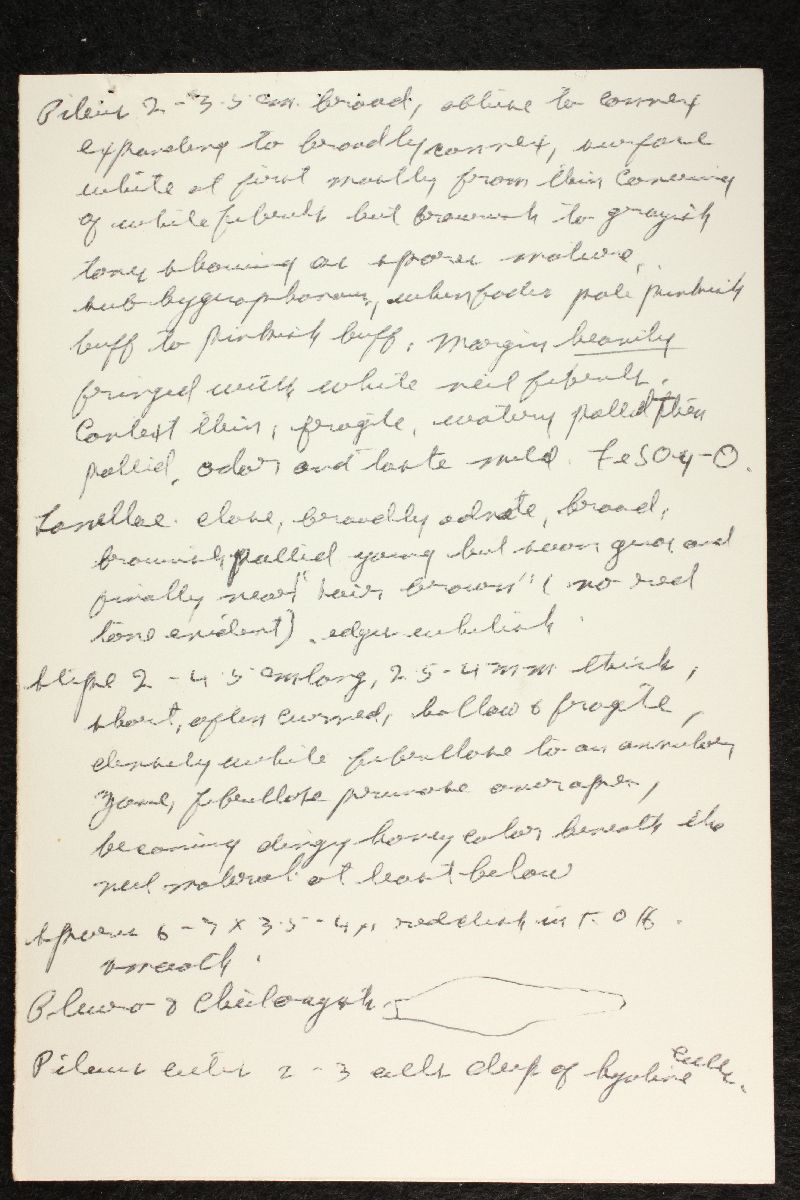 Pileus 2-3.5 cm broad, obtuse to convex
expanding to broadly convex, surface
white at first mostly from thin covering
of white fibrils but brownish to grayish
tones showing as spores mature,
subhygrophanous, when faded pale pinkish
buff to pinkish buff, margin heavily
fringed with white veil fibrils.
Context thin, fragile, watery pallid then
pallid, odor and taste mild. FeSO4-O.
Lamellae close, broadly adnate, broad,
brownish pallid young but soon gray and
finally near "hair brown" (no red
tone evident), edges whitish
stipe 2-4.5 cm long, 2.5-4 mm thick,
short, often curved, hollow & fragile,
densely white fibrillose to an annular
zone, fibrillose pruinose above,
becoming dingy honey color beneath the
veil material at least below
spores 6-7 x 3.5-4 µ reddish in KOH.
smooth.
Pleuro- & Cheilocystidia
Pileus cutis 2-3 cells deep of hyaline cells.